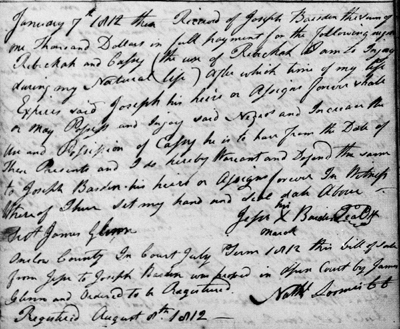 January 7th 1812 then Received of Joseph Basden the sum of
one Thousand Dollars in full payment for the following negroes
Rebeckah and Cassy (the use of Rebeckah I am to Injoy
during my Natural life) After which time of my life
Expires said Joseph his heirs or Assigns forever shall
or may Possess and Injoy said Negros and Increase the
Use and Possession of Cassy he is to have from the Date of
These Presents and I do hereby Warant and Defend the same
to Joseph Basden his heirs or Assigns forever In Witness
whereof I have set my hand and seal date Above
his
Jesse X Basden Seal
mark
Test James Glenn
Onslow County In Court July Term 1812 this bill of sale
from Jesse to Joseph Basden was proved in Open Court by James
Glenn and Ordered to be Registered.
Nathl Loomis CC
Registered August 8th 1812